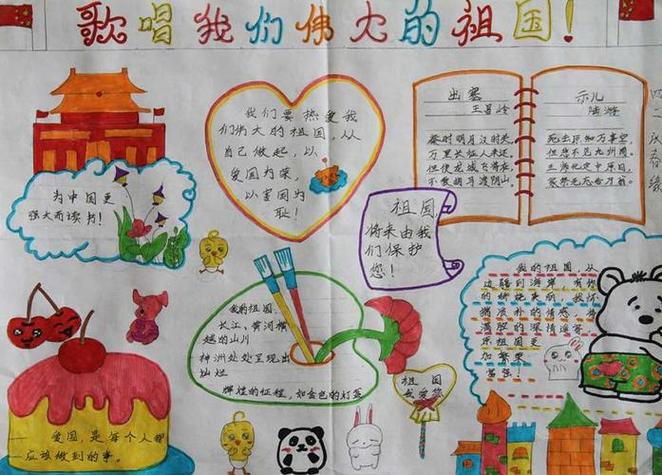 歌唱我们伟大的祖国!
为中国更
强大而读书!
我们要热爱我
们伟大的祖国,从
自己做起,以
爱国为荣,
以害国为
耻!
出塞
王昌龄
秦时明月汉时关,
万里长征人未还。
但使龙城飞将在,
不教胡马渡阴山。
示儿
陆游
死去原知万事空,
但悲不见九州同。
王师北定中原日,
家祭无忘告乃翁。
祖国,
将来由我
们保护
您!
我的祖国,
长江、黄河横
越的山川
神州处处呈现出
灿烂
辉煌的征程,如金色的灯盏
祖国
我爱您
我的祖国,从
边疆到海岸
的
满腔的深情
祖国更
加繁荣
富强!
爱国,是每个人都
应该做到的事。